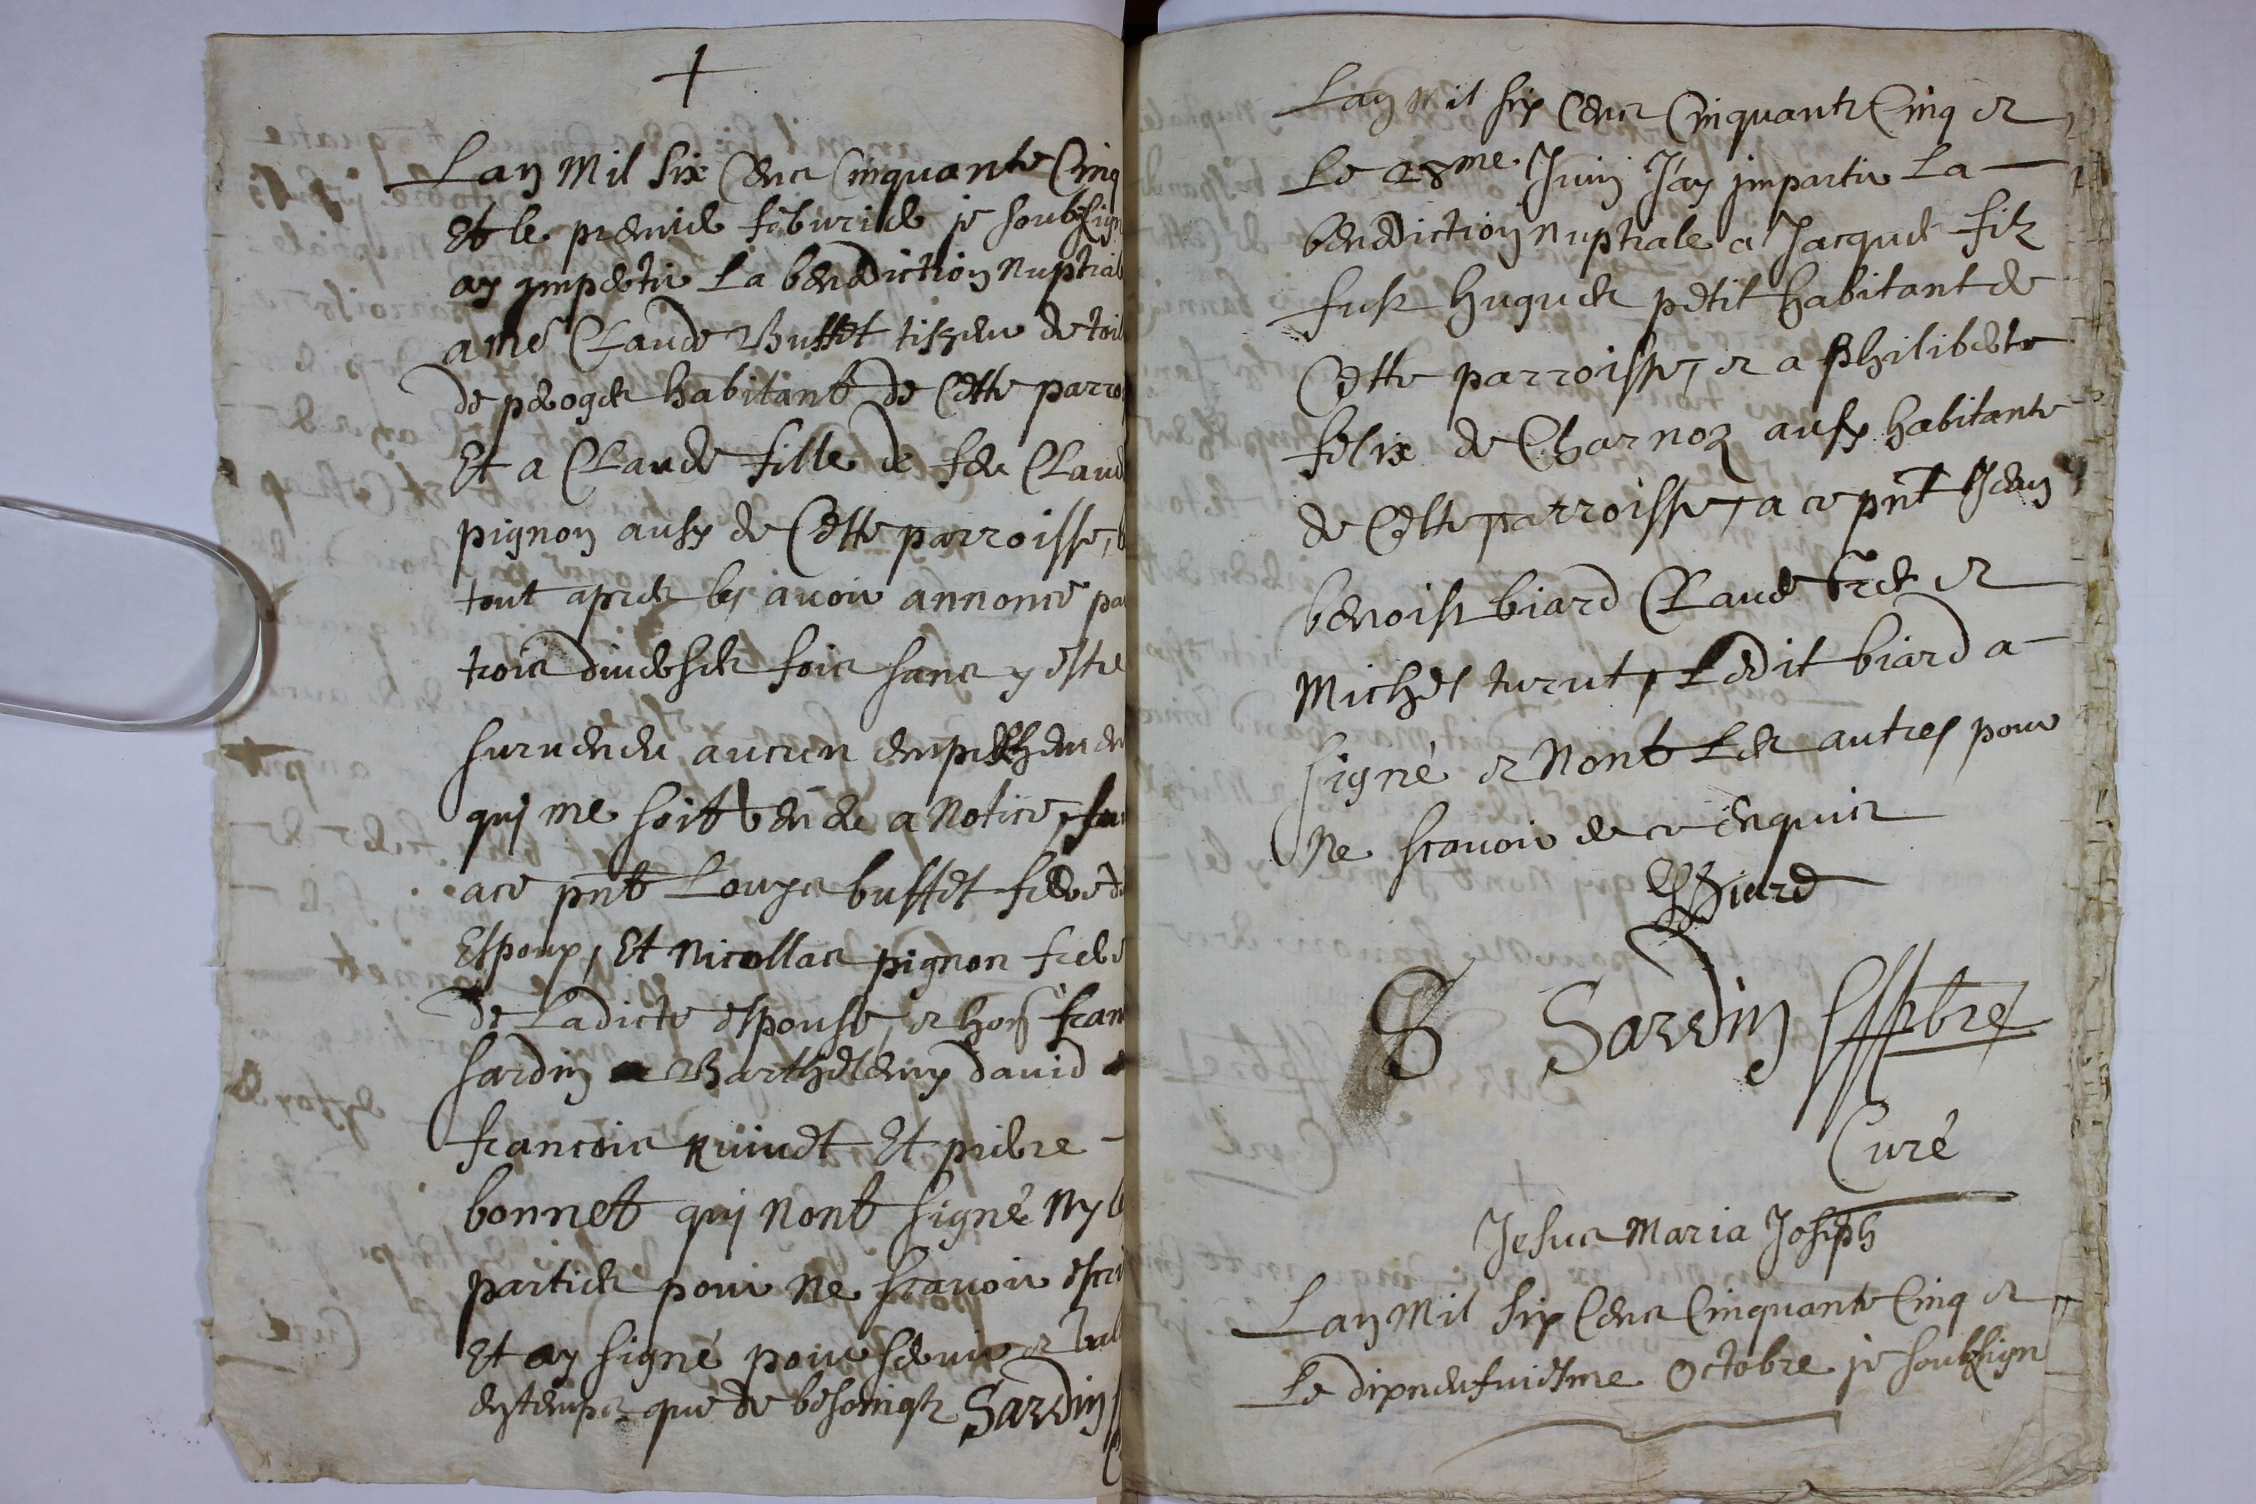 Lan Mil Six Cens Cinquante Cinq
Et le premier feburier je soubsign
ay imperti La benediction Nuptial
a me Claude Buffet tisseur de toil
de peroges habitant de Cette parro
Et a Claude fille de feu Claud
pignon aussy de Cette parroisse,
tout apres les avoir annoncé pa
trois diverses fois sans y estre
surveneu aucun empeschemen
quj me soit veneu a Notice,
a ce pnt Louys buffet frere d
Espoux, Et Nicollas pignon frere
de Ladicte espouse, et hon fran
sardin et Barthelemy david
francois Et pierre
bonnet quj Nont signé Ny l
parties pour Ne scavoir escri
Et ay signé pour servir et val
en temps que de besoing Sardin
Lan Mil six Cens Cinquante Cinq et
Le 28me Juin Jay imparti La
benediction Nuptiale a Jacques filz
fust hugues petit habitant de
Cette parroisse, et a philiberte
felix de Charnoz aussy habitante
de Cette parroisse, a ce pnt Jean
benoist biard Claude et
Michel turut, Ledit biard a
signé et Nont Les autres pour
Ne scavoir de ce enquis
Biard
S Sardin pbre
Curé
Jesus Maria Joseph
Lan Mil six Cens Cinquante Cinq et
Le dixneufuiesme Octobre je soubsign